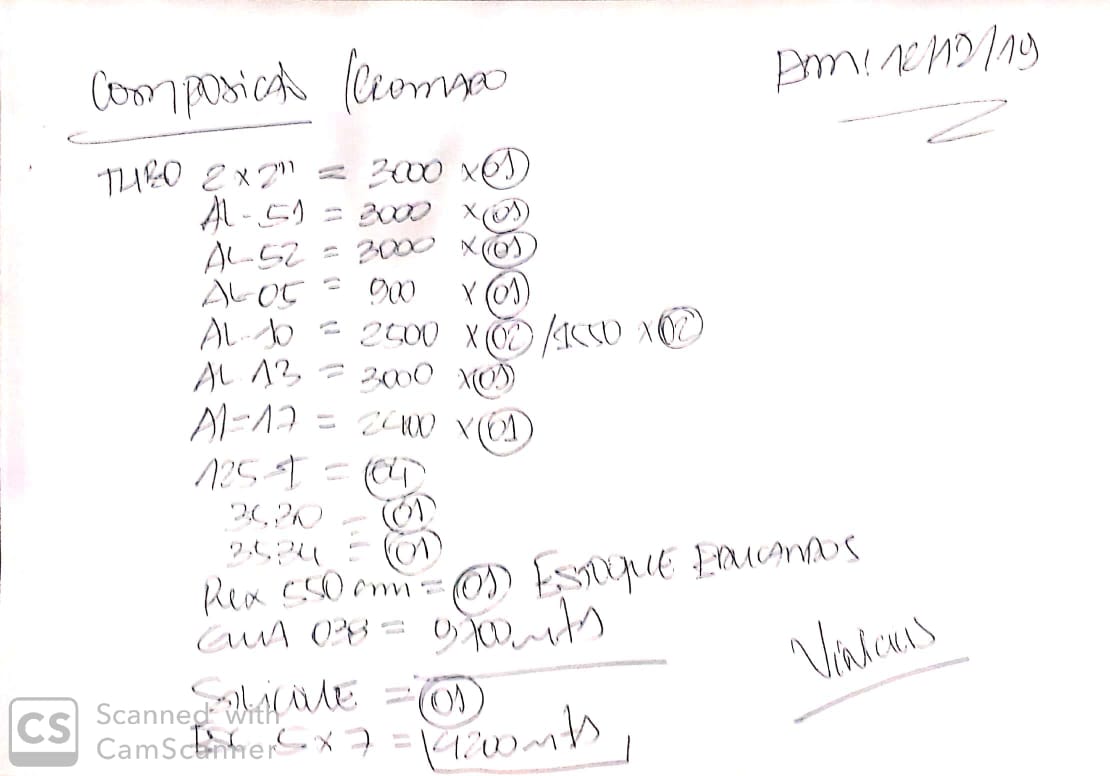 Composição / Cromado
Em: 12/12/19
TUBO 2x2" = 3000 x 01
AL-51 = 3000 x 01
AL-52 = 3000 x 01
AL-05 = 900 x 01
AL-10 = 2500 x 02 / 1550 x 02
AL 13 = 3000 x 01
Al-17 = 2400 x 01
125-I = 04
3530 = 01
3534 = 01
Rex 550 mm = 01 ESTOQUE
038 = 9,700 mts
Vinicius
Silicone = 01
5 x 7 = 4200 mts
CS Scanned with
CamScanner